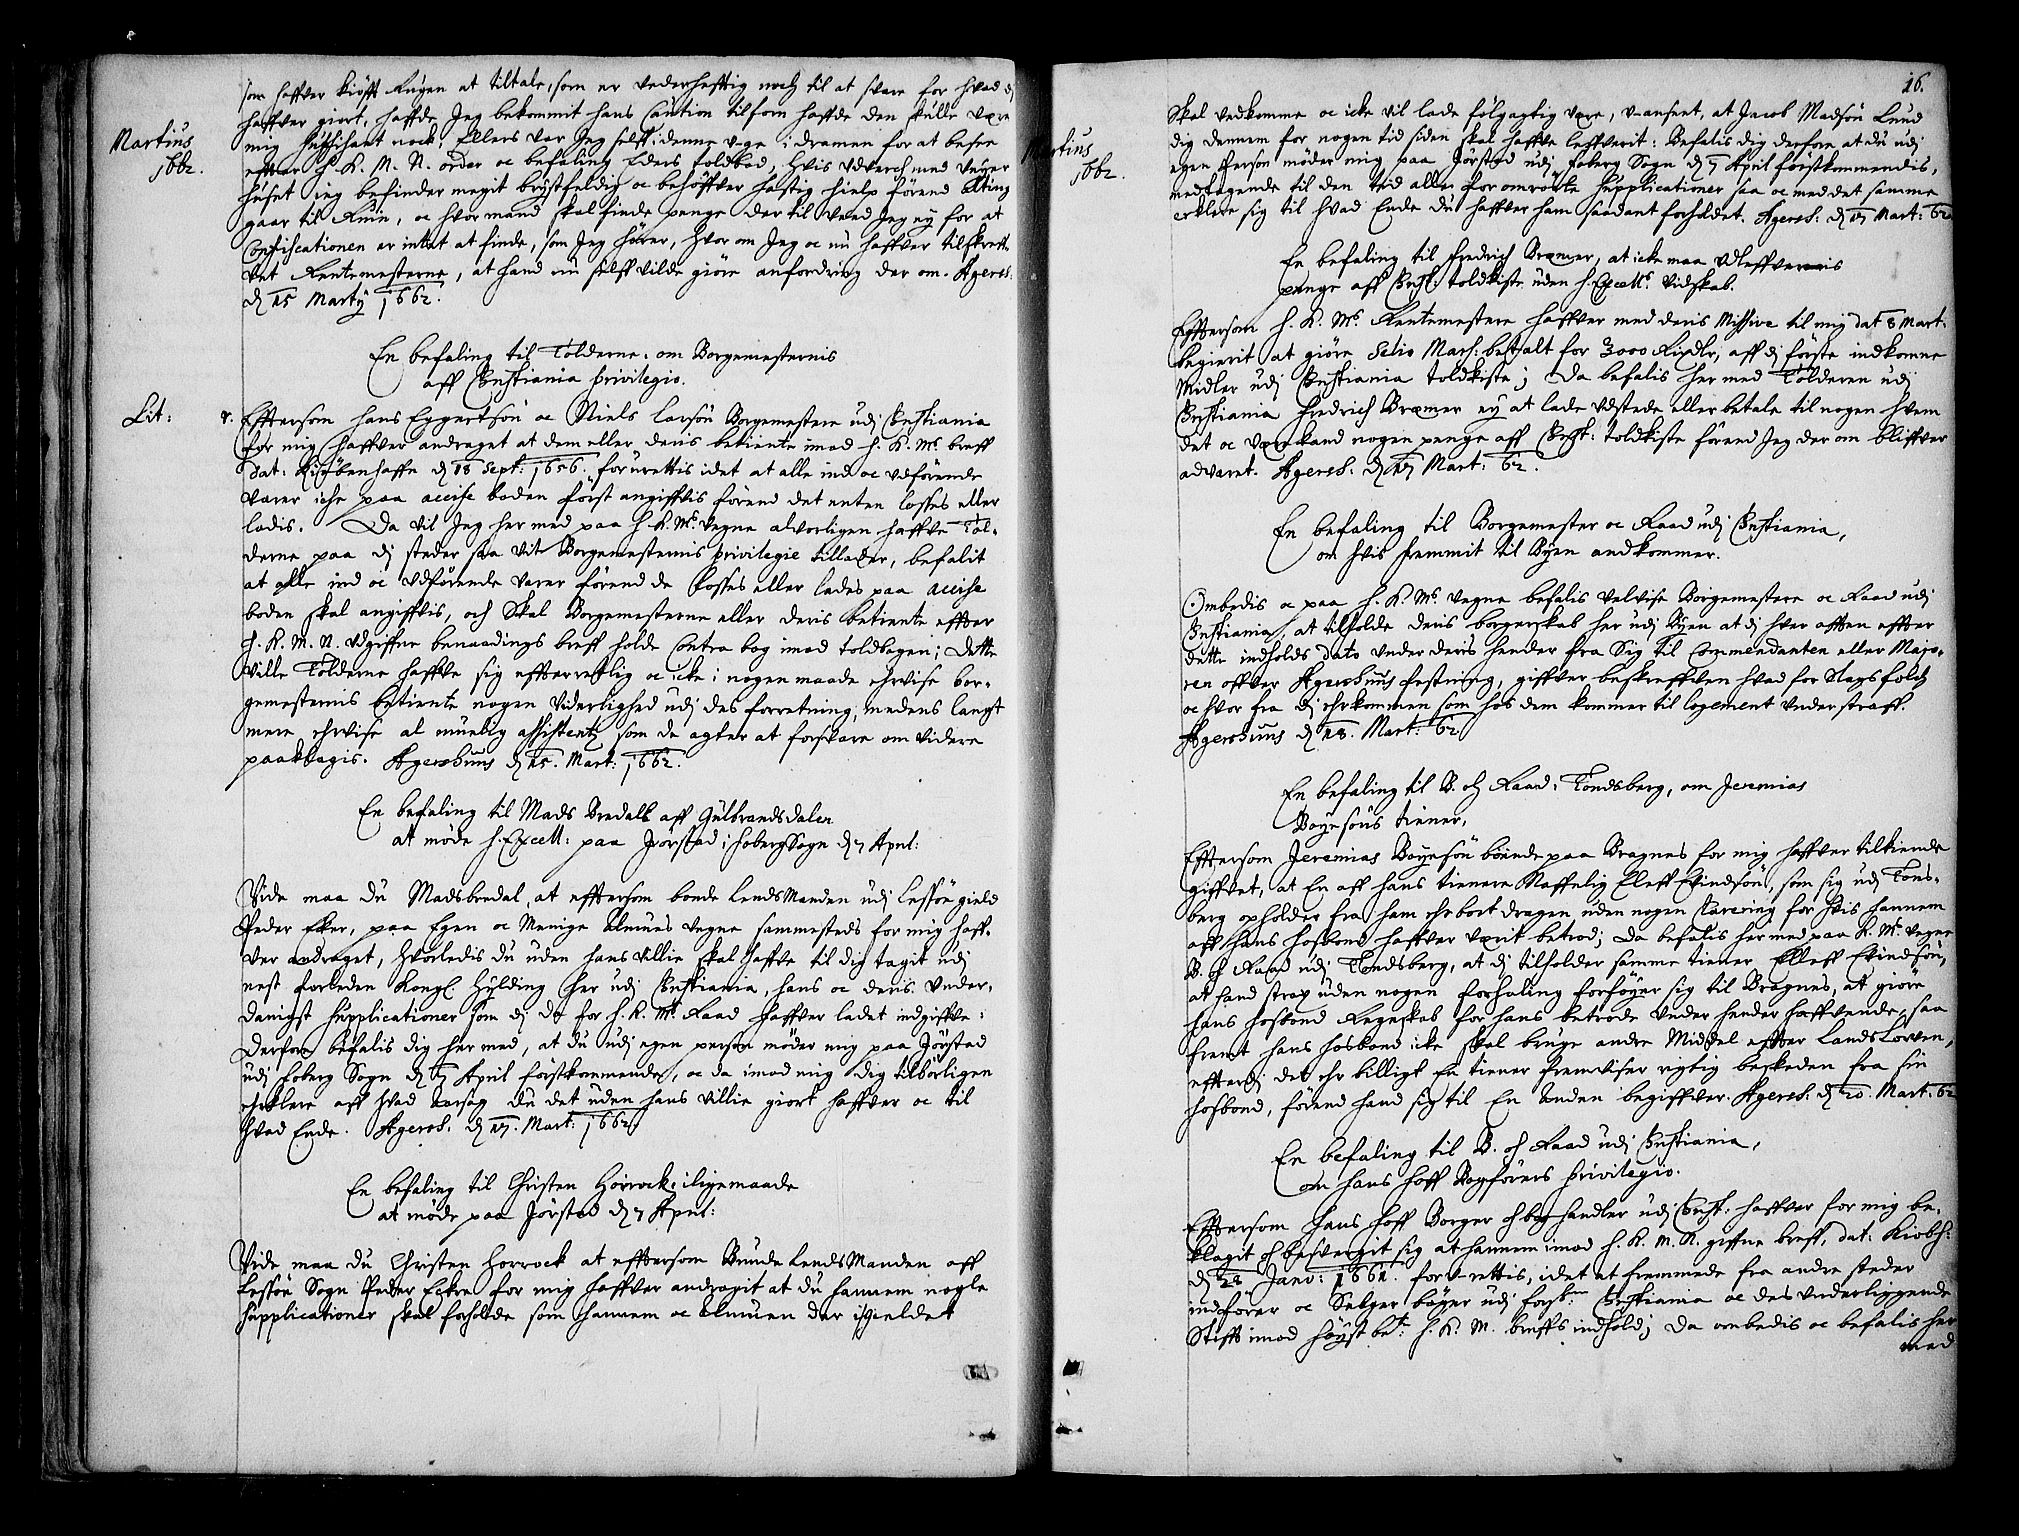 Martius
1662.
som haffver kiøfft Rugen at tiltale, som er vederhefftig noch til at svare for hvad dj
haffver giort, haffde Jeg bekommit hans Caution tilforn haffde den skulle være
mig suffisant nock; Ellers var Jeg selff i denne uge i dramen for at besee
effter H. K. M. N. order oc befaling Eders toldbod, hvis udverch med Veyer
huset ieg befinder megit brystfeldig oc behøffver hastig hielp førend alting
gaar til Ruin, oc hvor mand skal finde penge der til veed Jeg ey for at
Confiscationen er intet at finde, som Jeg hører, hvor om Jeg oc nu haffver tilskreff-
vet Rentemesterne, at hand nu selff vilde giøre anfordring der om. Agersh:
dj 15 Martij 1662.
En befaling til Tolderne: om Borgemesternis
aff Christiania privilegio.
Lit: r. Effttersom Hans Eggertsøn oc Niels Larsøn Borgemestere udj Christiania
for mig haffver andraget at dem eller deris betiente imod H. K. Ms. breff
dat: Kiøbenhaffn dj 18 Sept: 1656. forurettis idet at alle ind oc udførende
varer iche paa accise boden først angiffvis førend det enten losses eller
ladis. Da vil Jeg her med paa H. K. Ms. vegne alvorligen haffve Tol-
derne paa dj steder saa vit Borgemesternis privilegie tillader, befalit
at alle ind oc udførende varer førend de losses eller lades paa accise
boden skal angiffvis, och skal Borgemesterne eller deris betiente effter
H. K. M. N. udgiffne benaadings breff holde Contra bog imod toldbogen; dette
ville Tolderne haffve sig effterretlig oc icke i nogen maade ehrvise bor-
gemesternis betiente nogen viderlighed udj des forretning, medens langt
mere ehrvise al muelig assistentz som de agter at forsvare om videre
paaklagis. Agershuus dj 15. Mart: 1662.
En befaling til Mads Bredall aff Gulbrandsdalen
at møde H. Excell: paa Jørstad i Foberg Sogn dj 7 April:
Vide maa du Mads bredal, at effttersom bonde LendsManden udj Lessøe gield
Peder Eker, paa Egen oc Menige Almues vegne sammesteds for mig haff-
ver andraget, hvorledis du uden hans villie skal haffve til dig tagit udj
nest forleden Kongl. Hylding her udj Christiania, hans oc deris under-
danigst supplicationer som dj da for H. K. Ms. Raad haffver ladet indgiffve:
Derfor befalis dig her med, at du udj egen person møder mig paa Jørstad
udj Foberg Sogn dj 7 April førstkommende, oc da imod mig dig tilbørligen
erklere aff hvad aarsag du det uden hans villie giort haffver oc til
hvad Ende. Agersh. dj 17. Mart: 1662.
En befaling til Christen Horrock: iligemaade
at møde paa Jørstad dj 7 April:
Vide maa du Christen Horrock at effttersom Bunde LendsManden aff
Lessøe Sogn Peder Eckre for mig haffver andragit at du hannem nogle
supplicationer skal forholde som hannem oc Almuen der i Gieldet
16.
Martius
1662.
Skal vedkomme oc icke vil lade følgagtig være, uanseet, at Jacob Madsøn Lund
dig dennem for nogen tid siden skal haffve leffverit: Befalis dig derfore at du udj
egen Person møder mig paa Jørstad udj Foberg Sogn dj 7 April førstkommendis,
medtagende til den tid alle foromrørte supplicationer saa oc med det samme
erklere sig til hvad Ende du haffver ham saadant forholdet. Agersh: dj 17 Mart: 62
En befaling til Fredrich Bræmer, at icke maa udleffveris
penge aff Christ: toldkiste uden H. Excells. vidskab.
Effttersom H. K. Ms. Rentemestere haffver med deris Missive til mig dat 8 Mart:
begierit at giøre Selio Mars: betalt for 3000 Rixdlr, aff dj første indkomne
Midler udj Christiania toldkiste; Da befalis her med Tolderen udj
Christiania Fredrich Bræmer ey at lade udstede eller betale til nogen hvem
det oc være kand nogen penge aff Christ: toldkiste førend Jeg der om bliffver
advaret. Agersh: dj 17 Mart: 62.
En befaling til Borgemester oc Raad udj Christiania,
om hvis fremmit til Byen andkommer.
Ombedis oc paa H. K. Ms. vegne befalis velvise Borgemestere oc Raad udj
Christiania, at tilholde deris borgerskab her udj Byen at dj hver afften effter
dette indholds dato under deris hender fra sig til Commendanten eller Majo-
ren offver Agershuus festning, giffver beskreffven hvad for slags folch
oc hvor fra dj ehr kommen som hos dem kommer til logement under straff.
Agershuus dj 18. Mart: 62
En befaling til B. oc Raad i Tondsberg, om Jeremias
Boyesøns tiener,
Effttersom Jeremias Boyesøn boende paa Bragnes for mig haffver tilkiende
giffvet, at En aff hans tienere Naffnlig Eleff Evindsøn, som sig udj Tons-
berg opholder fra ham ehr bort dragen uden nogen klarering for hvis hannem
aff hans hosbond haffver værit betrod; Da befalis her med paa K. Ms. vegne
B. oc Raad udj Tondsberg, at dj tilholder samme tiener Elleff Evindsøn,
at hand strax uden nogen forhaling forføyer sig til Bragnes, at giøre
hans hosbond Regeskab for hans betrode under hender haffvende, saa
fremt hans hosbond icke skal bruge andre Middel effter LandsLowen,
effterdj det ehr billigt En tiener fremviser rigtig beskeden fra sin
hosbond, førend hand sig til En anden begiffver. Agersh: dj 20. Mart: 62
En befaling til B. oc Raad udj Christiania,
om Hans Hoff Bogførers privilegio.
Effttersom Hans Hoff Borger oc boghandler udj Christ: haffver for mig be-
klagit oc besvergit sig at hannem imod H. K. M. N. giffne breff, dat: Kiøbh:
dj 28 Janv: 1661. for-u-rettis, idet at fremmede fra andre steder
indfører oc Selger bøger udj forskne Christiania oc des underliggende
Stifft imod høyst bete: H. K. M. breffs indhold; Da ombedis oc befalis her
med